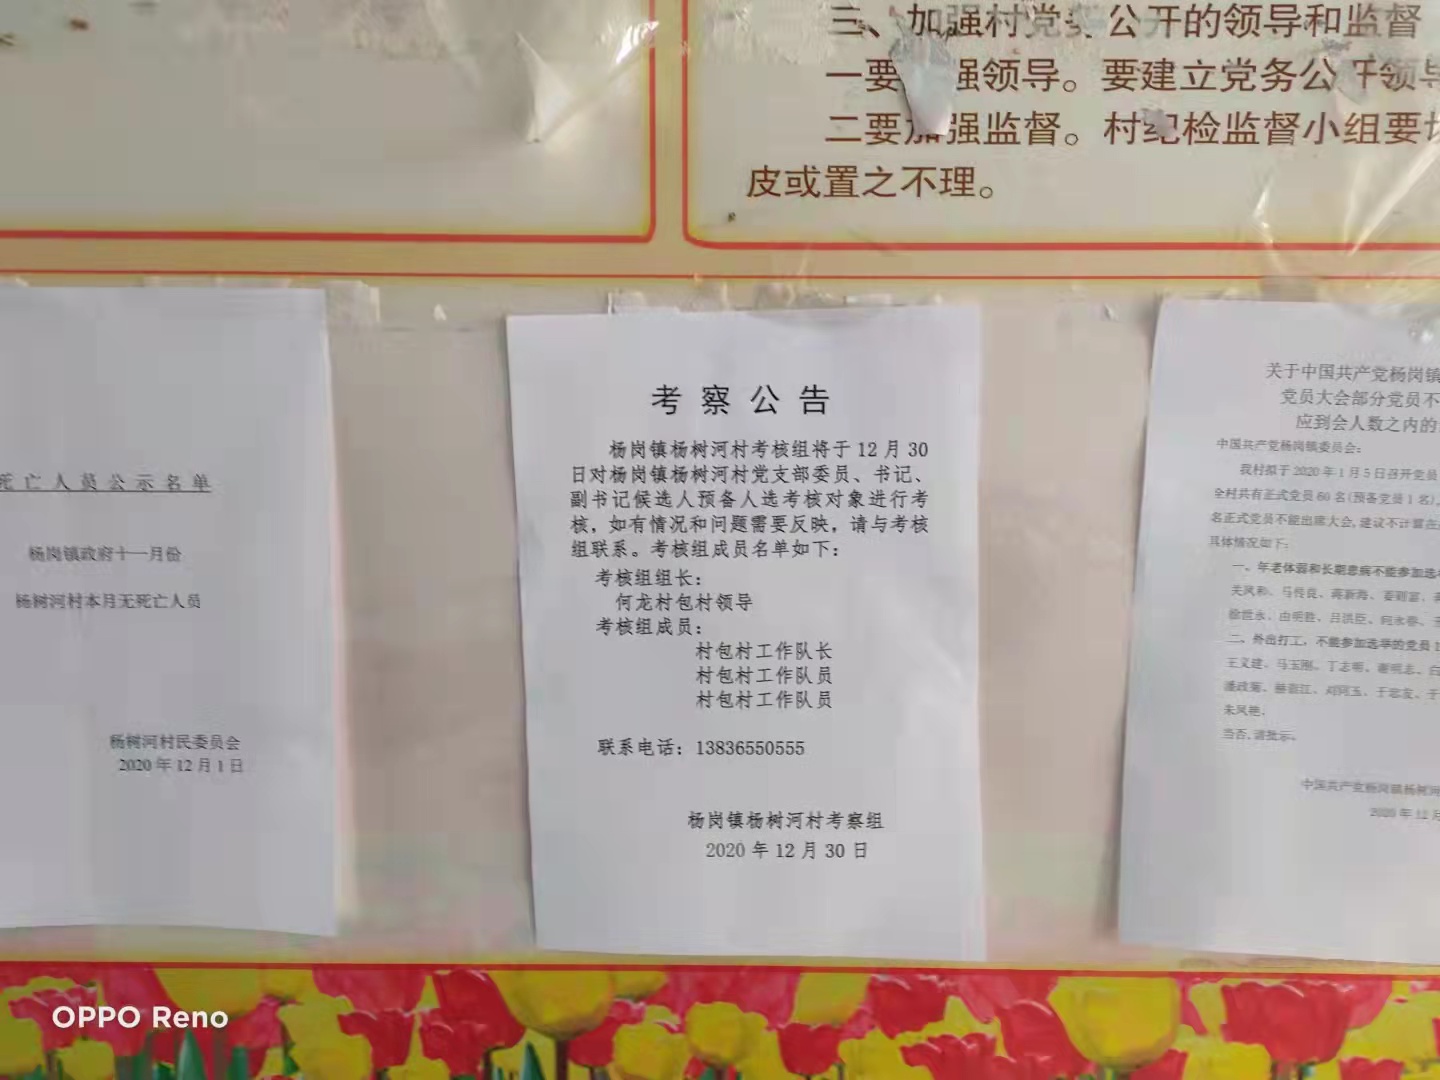 三、加强村党务公开的领导和监督
一要 强领导。要建立党务公开领导
二要加强监督。村纪检监督小组要切
皮或置之不理。
死亡人员公示名单
杨岗镇政府十一月份
杨树河村本月无死亡人员
杨树河村民委员会
2020年12月1日
考察公告
杨岗镇杨树河村考核组将于12月30
日对杨岗镇杨树河村党支部委员、书记、
副书记候选人预备人选考核对象进行考
核，如有情况和问题需要反映，请与考核
组联系。考核组成员名单如下：
考核组组长：
何龙村包村领导
考核组成员：
村包村工作队长
村包村工作队员
村包村工作队员
联系电话：13836550555
杨岗镇杨树河村考察组
2020年12月30日
关于中国共产党杨岗镇
党员大会部分党员不
应到会人数之内的
中国共产党杨岗镇委员会：
我村拟于2020年1月5日召开党员
全村共有正式党员60名(预备党员1名),
名正式党员不能出席大会,建议不计算在
具体情况如下：
一、年老体弱和长期患病不能参加选举
关凤和、马传良、蒋新海、姜则富、
徐世永、由明胜、吕洪臣、向永春、
二、外出打工，不能参加选举的党员
王文建、马玉刚、丁志明、谢明志、
潘政菊、 江、刘同玉、于忠友、于
朱凤艳。
当否,请批示。
中国共产党杨岗镇杨树河
2020年12月
OPPO Reno